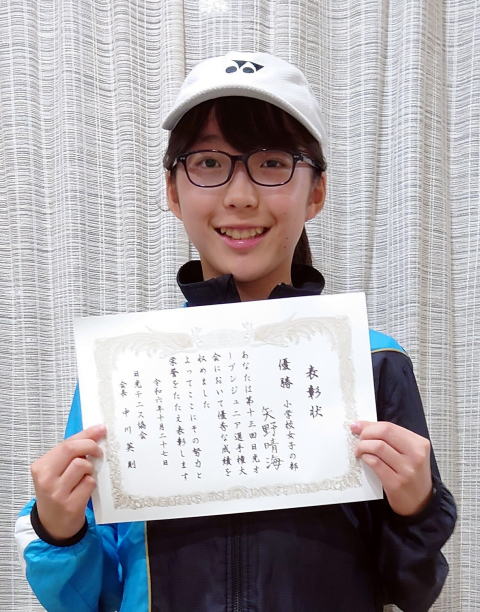 表彰状
優勝 小学校女子の部
矢野晴海
あなたは第十三回日光オ
ープンジュニア選手権大
会において優秀な成績を
収めました
よってここにその努力と
栄誉をたたえ表彰します
令和六年十月二十七日
日光テニス協会
会長 中川英則